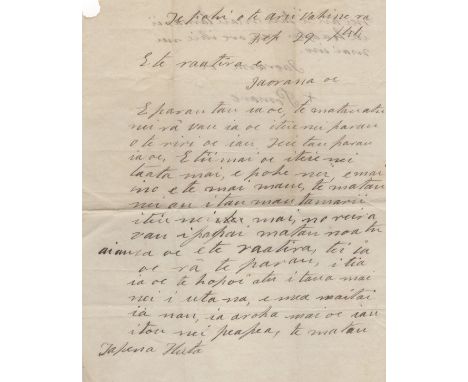 Te pohi o te arii vahine ra
Sep 29
E te raatira e
Iaorana oe
E parau tau ia oe, te matau atu
nei râ vau ia oe i teie nei parau
o te riri oe iau, Teie tau parau
ia oe, E tii mai oe i teie nei
taata mai, e pohe nei, e mai
ino e te mai maue, te matau
nei au i tau mau tamarii
i teie nei mai, no reira
vau i papai matau noa tu
ai au ia oe e te raatira, tei ia
oe râ te parau, i tia
ia oe te hopoi atu i taua mai
nei i uta na, e mea maitai
ia nau, ia aroha mai oe iau
i tou nei peapea, te matau
Tapena Huta